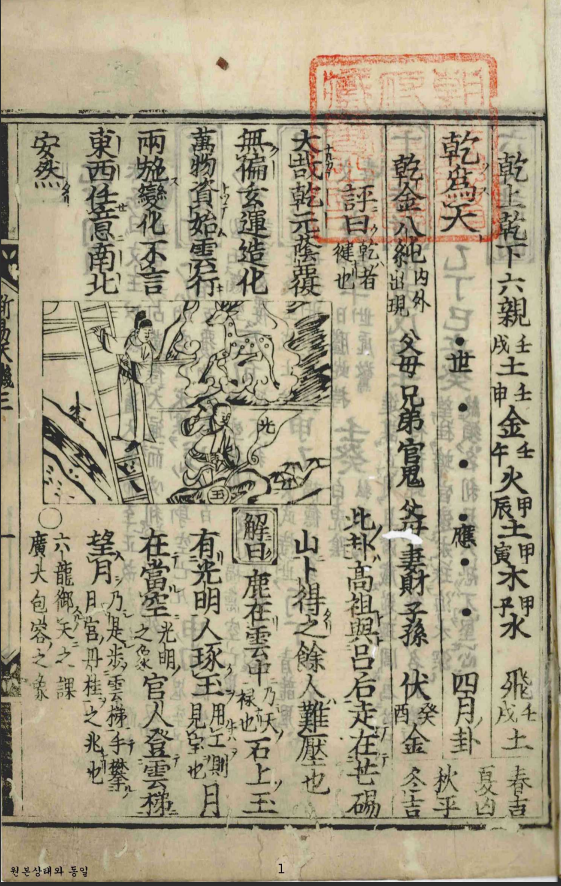 乾上乾下 六親 壬戌土 壬申金 壬午火 甲辰土 甲寅木 甲子水 飛壬戌土 春吉 夏凶
乾爲天 世 應 四月卦 秋平
乾金八純 內外出現 父母 兄弟 官鬼 父母 妻財 子孫 伏癸酉金 冬吉
評曰 乾者健也
此卦高祖與呂后走在芒碭
山卜得之餘人難壓也
大哉乾元蔭覆
無偏玄運造化
萬物資始雲行
雨施變化不言
東西任意南北
安然
北
玉
解曰 鹿在雲中 乃天祿也 石上玉
有光明人琢玉 用工則見宝也 月
在當空 光明之象 官人登雲梯
望月 乃是步雲梯手攀月宮丹桂之兆也
○六龍御天之課
廣大包容之象
一
원본상태와 동일
1